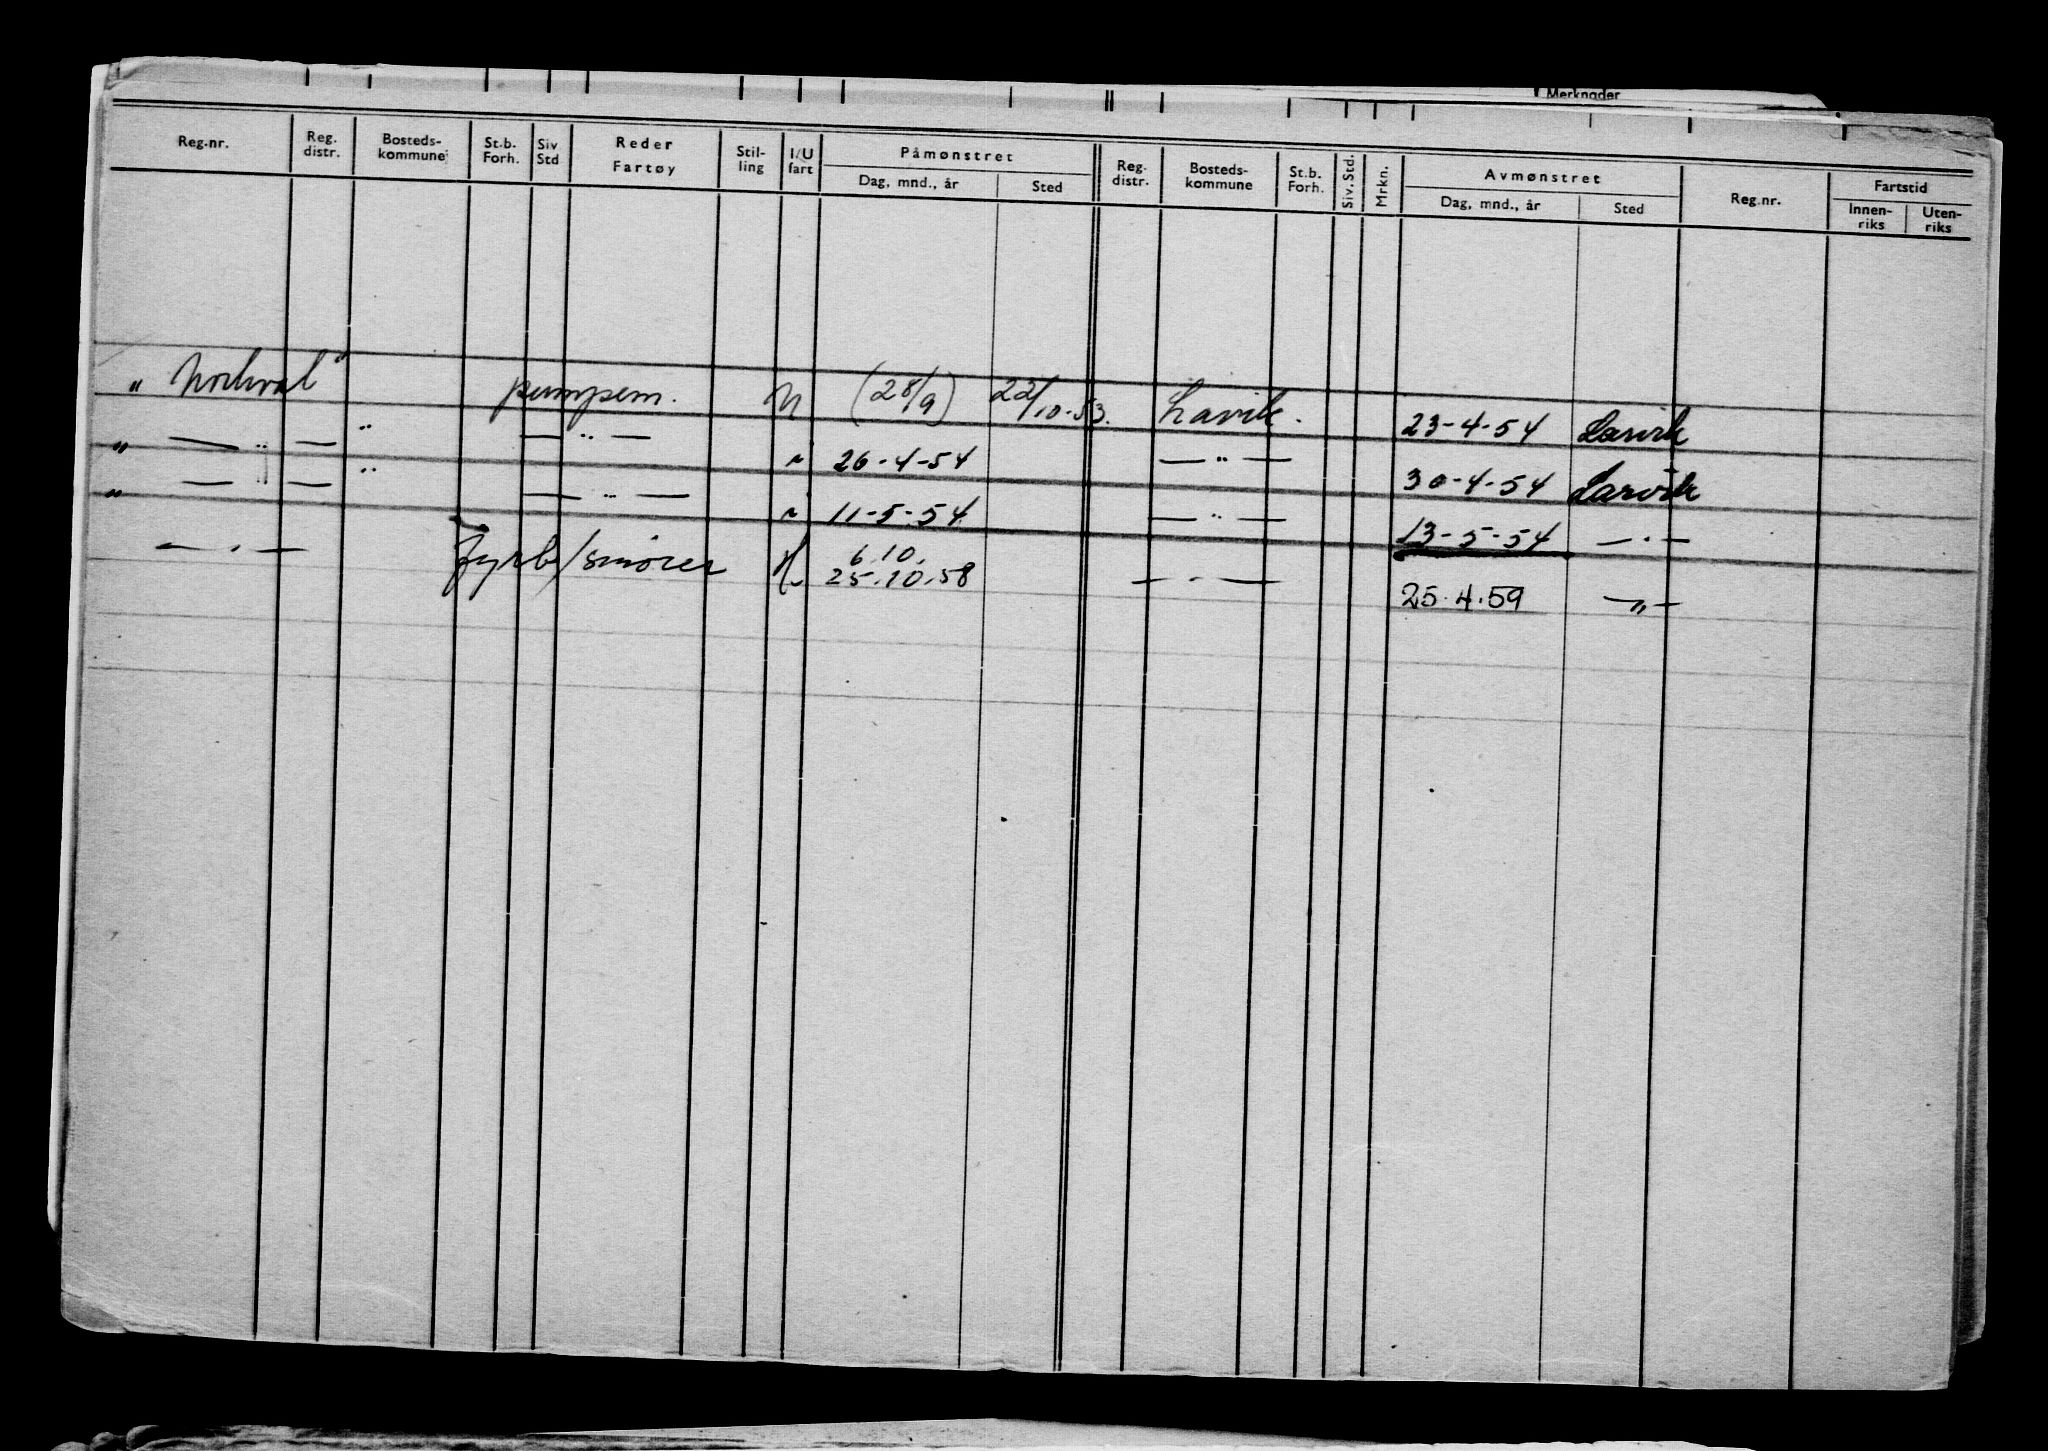 Merknader
Reg.nr. Reg. distr. Bosteds-kommune St.b. Forh. Siv Std Reder Fartøy Stil-ling I/U fart Påmønstret Dag, mnd., år Sted Reg. distr. Bosteds-kommune St.b. Forh. Siv. Std. Mrkn. Avmønstret Dag, mnd., år Sted Reg.nr. Fartstid Innen-riks Uten-riks
"Norhval" pumpem. U (28/9) 22/10-53. Larvik. 23-4-54 Larvik
" — " — " — " — " 26-4-54 — " — 30-4-54 Larvik
" — " — " — " — " 11-5-54 — " — 13-5-54 — " —
— " — Fyrb/smører 6.10. 25.10.58 — " — 25.4.59 — " —